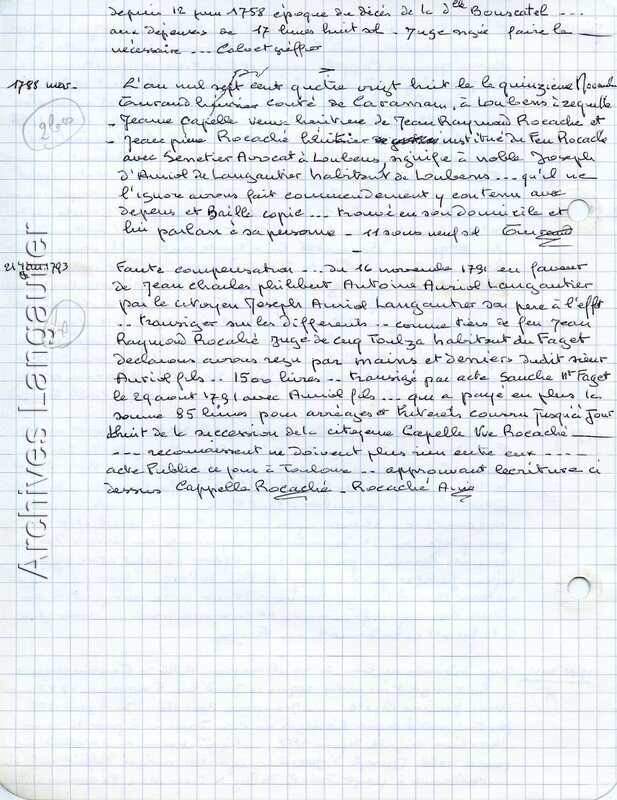 depuis 12 juin 1758 époque du décès de la dlle Bouscatel ...
aux dépenses de 17 livres huit sol - Juge signé faire le
nécessaire ... Calvet greffier
1788 nov.
L'an mil sept cent quatre vingt huit le le quinzieme Novembre
Tournand huissier comté de Caraman, à Loubens à requette
- Jeanne Capelle veuve héritiere de Jean Raymond Rocaché et
- Jean pierre Rocaché héritier institué de Feu Rocaché
avec Senetier Avocat à Loubens, signifié à noble Joseph
d'Auriol de Langautier habitant de Loubens ... qu'il ne
l'ignore avons fait commendement y contenu aux
depens et Baille copie ... trouvé en son domixile et
lui parlan à sa personne - 11 sous neuf sol
21 1793
Faute compensation ... du 16 novembre 1791 en faveur
de Jean charles philibert Antoine Auriol Langautier
par le citoyen Joseph Auriol Langautier son père à l'effet
.. transiger sur les differents .. comme tiers de feu Jean
Raymond Rocaché Juge de cuq Toulza habitant du Faget
declarons avons reçu par mains et deniers dudit sieur
Auriol fils .. 1500 livres .. transigé par acte Sauche Nre Faget
le 29 aout 1791 avec Auriol fils ... que a payé en plus la
somme 85 livres pour arréages et Interets couru jusqu'à jour
dhuit de la succession de la citoyene Capelle Vve Rocaché
--- reconnaissent ne doivent plus rien entre eux ----
acte Public ce jour à Toulouse .. approuvant lecriture ci
dessus Cappelle Rocaché - Rocaché
Archives Langautier